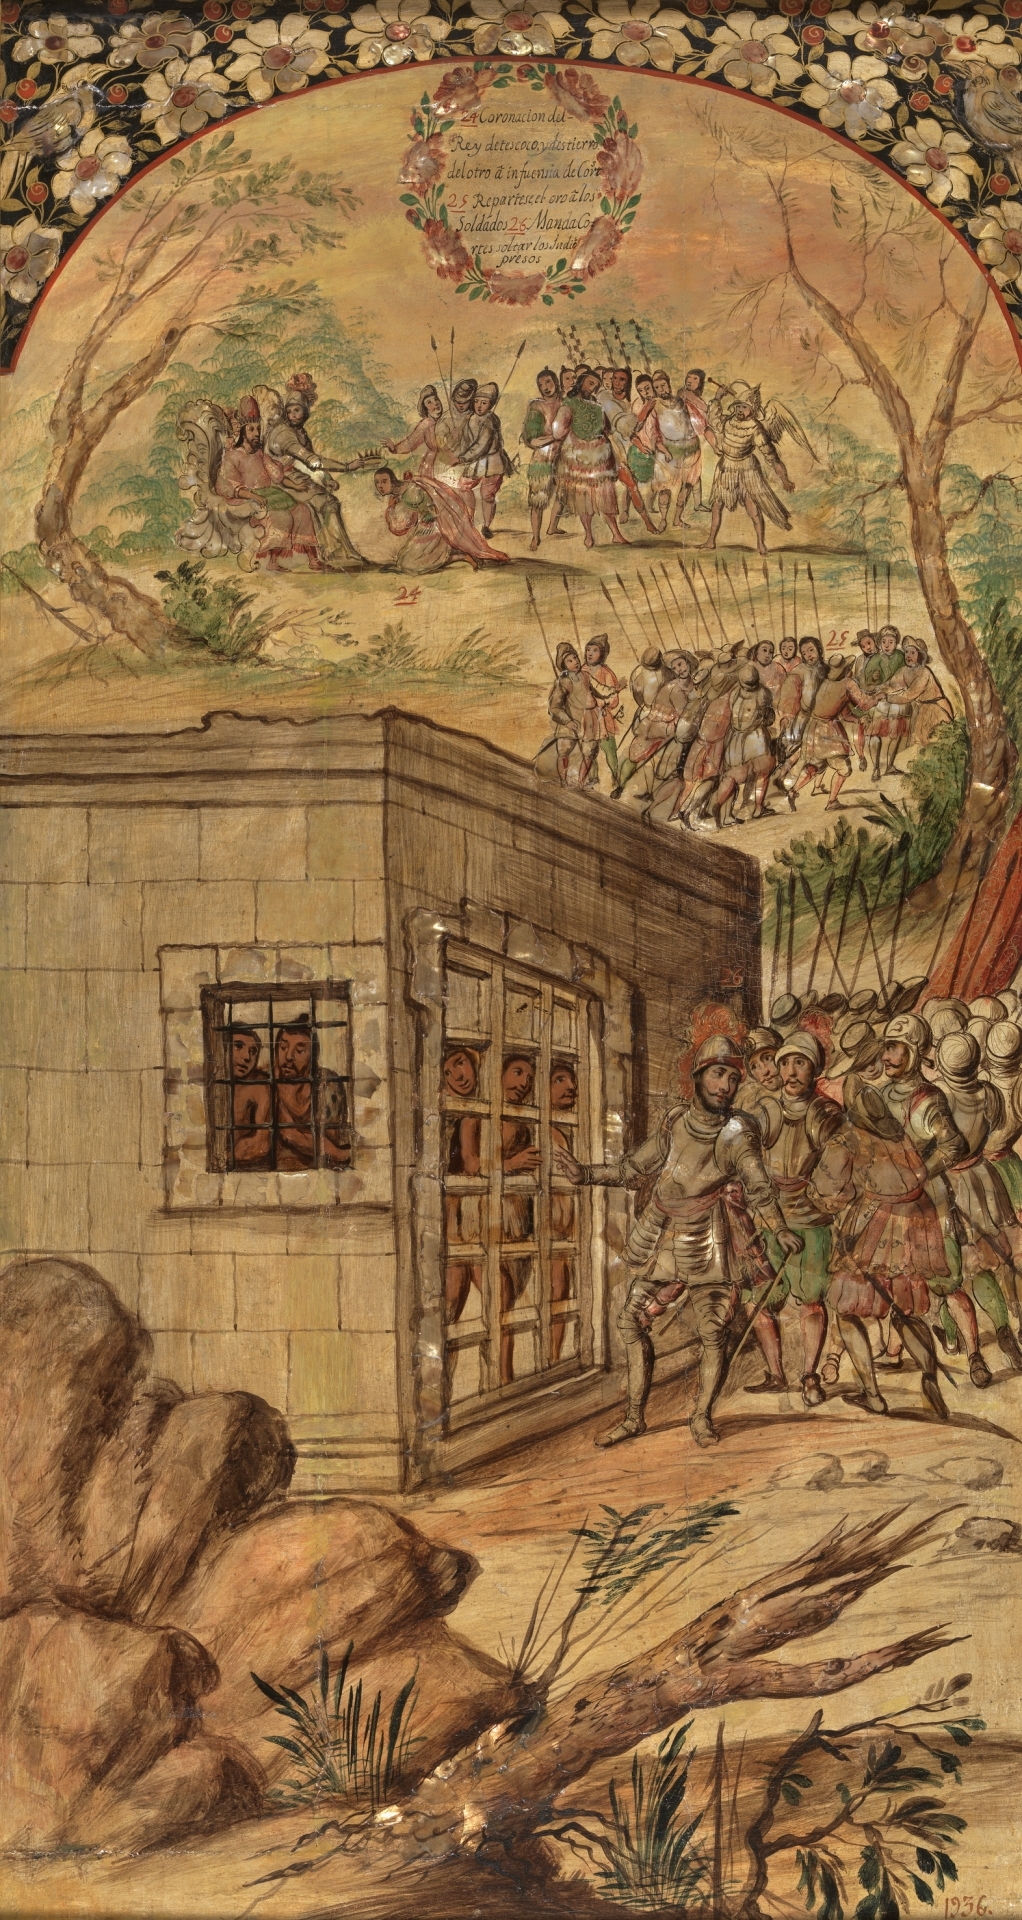 24 Coronacion del-
Rey detescoco, y destierro
del otro ã infuensia de Cort
25 Repartese el oro ã los
Soldados 26 Manda Co-
rtes soltar los Indiõ
presos
24
25
26
1936.